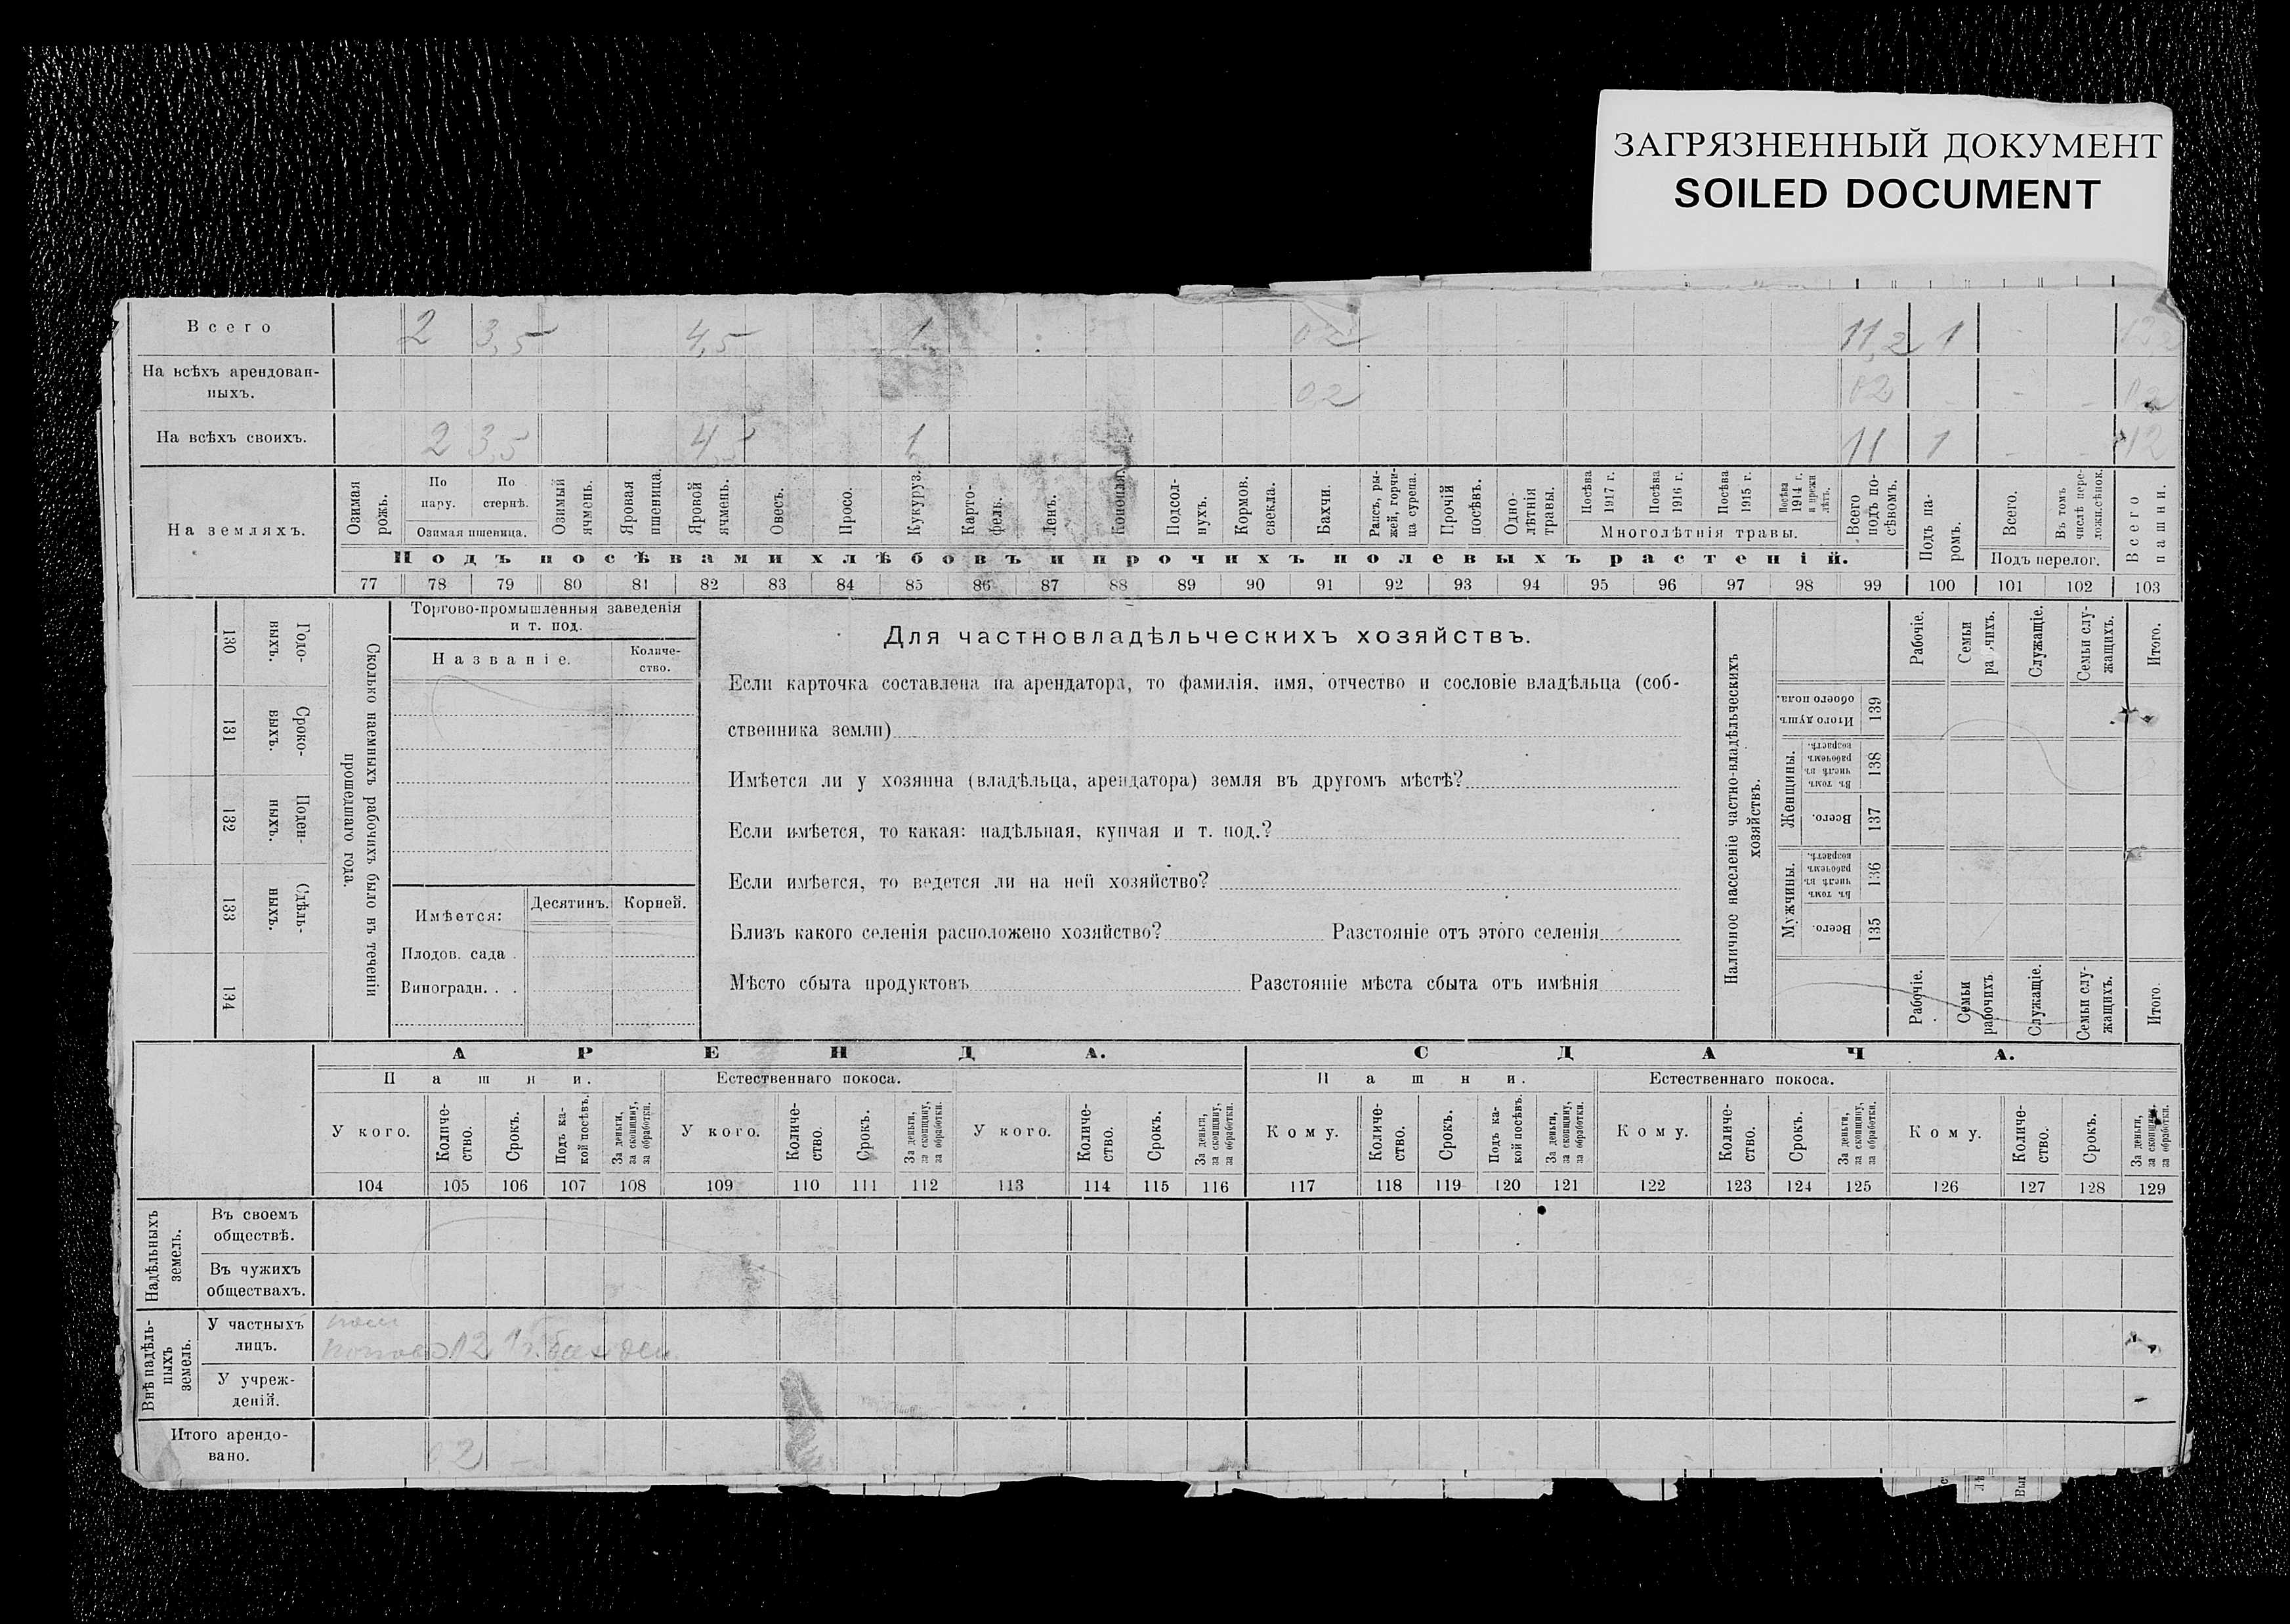 ЗАГРЯЗНЕННЫЙ ДОКУМЕНТ
SOILED DOCUMENT
Всего 2 3,5 4,5 1 02 11,2 1
На всѣхъ арендован-
ныхъ. 02 02 02
На всѣхъ своихъ. 2 3,5 4 1 11 1 12
На земляхъ.
Озимая рожь.
По пару.
По стернѣ.
Озимая пшеница.
Озимый ячмень.
Яровая пшеница.
Яровой ячмень.
Овесъ.
Просо.
Кукуруз.
Карто-
фель.
Ленъ.
Конопля.
Подсол-
нухъ.
Кормов. свекла.
Бахчи.
Рапсъ, ры-
жей, горчи-
ца суреца.
Прочій посѣвъ.
Одно-
лѣтнія травы.
Посѣва 1917 г.
Посѣва 1916 г.
Посѣва 1915 г.
Посѣва 1914 г. и прежн лѣтъ.
Многолѣтнія травы.
Всего подъ по-
сѣвомъ.
Подъ па-
ромъ.
Всего.
Въ томъ числѣ пере-
ложн.сѣнок.
Подъ перелог.
Всего пашни.
Подъ посѣвами хлѣбовъ и прочихъ полевыхъ растеній.
77 78 79 80 81 82 83 84 85 86 87 88 89 90 91 92 93 94 95 96 97 98 99 100 101 102 103
130 Годо-
выхъ.
131 Сроко-
выхъ.
132 Поден-
ныхъ.
133 Сдѣль-
ныхъ.
134
Сколько наемныхъ рабочихъ было въ теченіи
прошедшаго года.
Торгово-промышленныя заведенія
и т. под.
Названіе.
Количе-
ство.
Имѣется:
Десятинъ.
Корней.
Плодов. сада .
Виноградн. . .
Для частновладѣльческихъ хозяйствъ.
Если карточка составлена на арендатора, то фамилія, имя, отчество и сословіе владѣльца (соб-
ственника земли)
Имѣется ли у хозяина (владѣльца, арендатора) земля въ другомъ мѣстѣ?
Если имѣется, то какая: надѣльная, купчая и т. под.?
Если имѣется, то ведется ли на ней хозяйство?
Близъ какого селенія расположено хозяйство? Разстояніе отъ этого селенія
Мѣсто сбыта продуктовъ Разстояніе мѣста сбыта отъ имѣнія
Наличное населеніе частно-владѣльческихъ
хозяйствъ.
Рабочіе.
Семьи рабочихъ.
Служащіе.
Семьи слу-
жащихъ.
Итого.
Итого душъ обоего пола. 139
Женщины.
Въ томъ числѣ въ рабочемъ возрастѣ. 138
Всего. 137
Мужчины.
Въ томъ числѣ въ рабочемъ возрастѣ. 136
Всего. 135
Рабочіе.
Семьи рабочихъ
Служащіе.
Семьи слу-
жащихъ.
Итого.
АРЕНДА.
СДАЧА.
Пашни.
Естественнаго покоса.
Пашни.
Естественнаго покоса.
У кого.
Количе-
ство.
Срокъ.
Подъ ка-
кой посѣвъ.
За деньги, за скопщину, за обработки.
У кого.
Количе-
ство.
Срокъ.
За деньги, за скопщину, за обработки.
У кого.
Количе-
ство.
Срокъ.
За деньги, за скопщину, за обработки.
Кому.
Количе-
ство.
Срокъ.
Подъ ка-
кой посѣвъ.
За деньги, за скопщину, за обработки.
Кому.
Количе-
ство.
Срокъ.
За деньги, за скопщину, за обработки.
Кому.
Количе-
ство.
Срокъ.
За деньги, за скопщину, за обработки.
104 105 106 107 108 109 110 111 112 113 114 115 116 117 118 119 120 121 122 123 124 125 126 127 128 129
Надѣльныхъ земель.
Въ своемъ
обществѣ.
Въ чужихъ
обществахъ.
Внѣ надѣль-
ныхъ земель.
У частныхъ
лицъ. 02 1г. бах ден
У учреж-
деній.
Итого арендо-
вано. 02